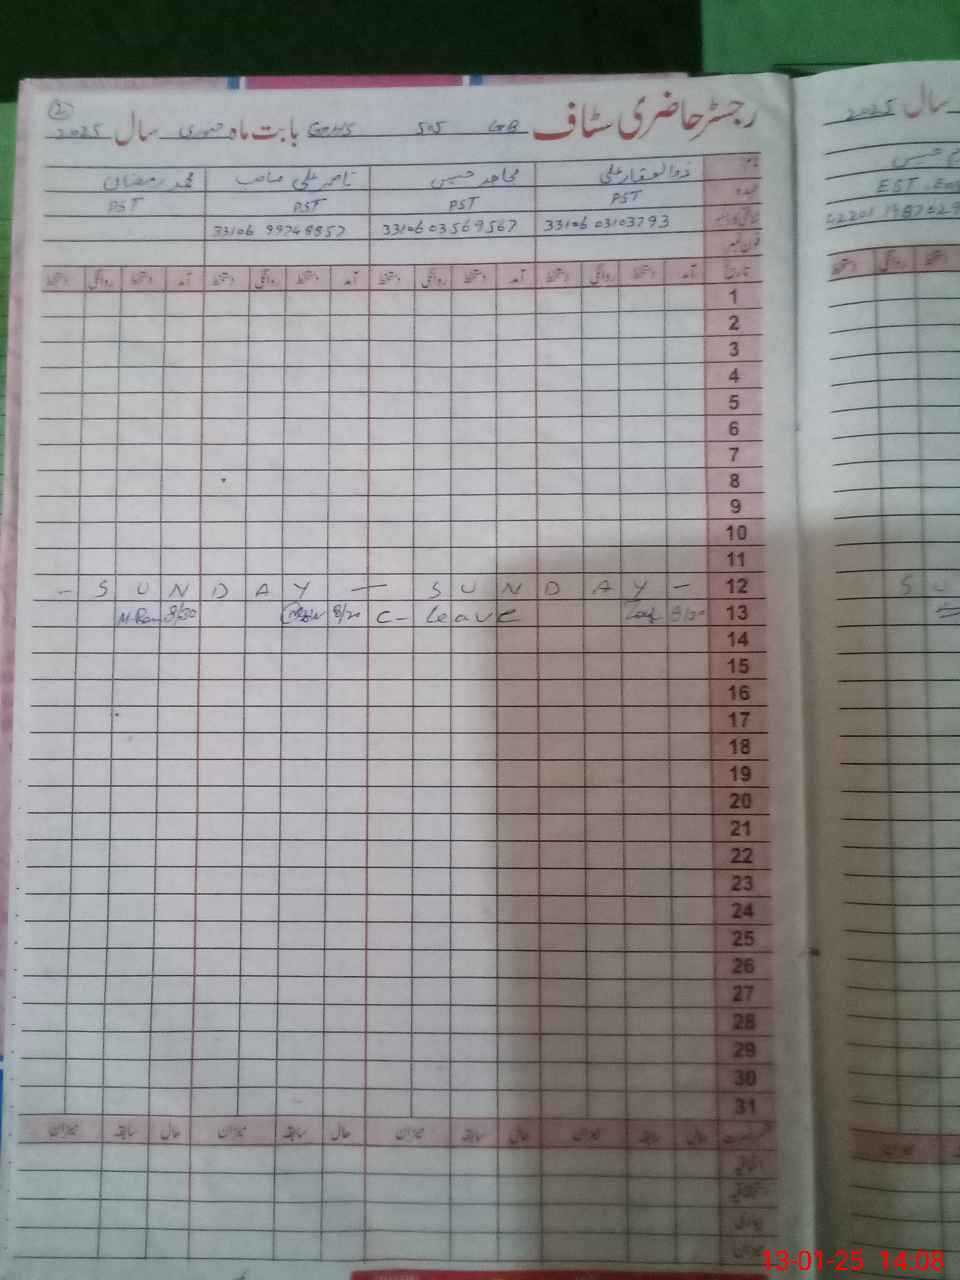 رجسٹر حاضری سٹاف GB 505 GHS بابت ماہ جنوری سال 2025
2
نام ذوالفقار علی مجاہد حسین ناصر علی صاحب محمد رمضان
عہدہ PST PST PST PST
33106 03103793 33106 03569567 33106 99748857
فون نمبر
تاریخ آمد دستخط روانگی دستخط آمد دستخط روانگی دستخط آمد دستخط روانگی دستخط آمد دستخط روانگی دستخط
1
2
3
4
5
6
7
8
9
10
11
12 - SUNDAY - SUNDAY -
13 8/30 C- Leave 8/20 8/30
14
15
16
17
18
19
20
21
22
23
24
25
26
27
28
29
30
31
حال سابقہ میزان حال سابقہ میزان حال سابقہ میزان حال سابقہ میزان
اتفاقیہ
استحقاقیہ
بیماری
میزان
سال 2025
EST
دستخط روانگی دستخط
SU
میزان
13-01-25 14:08